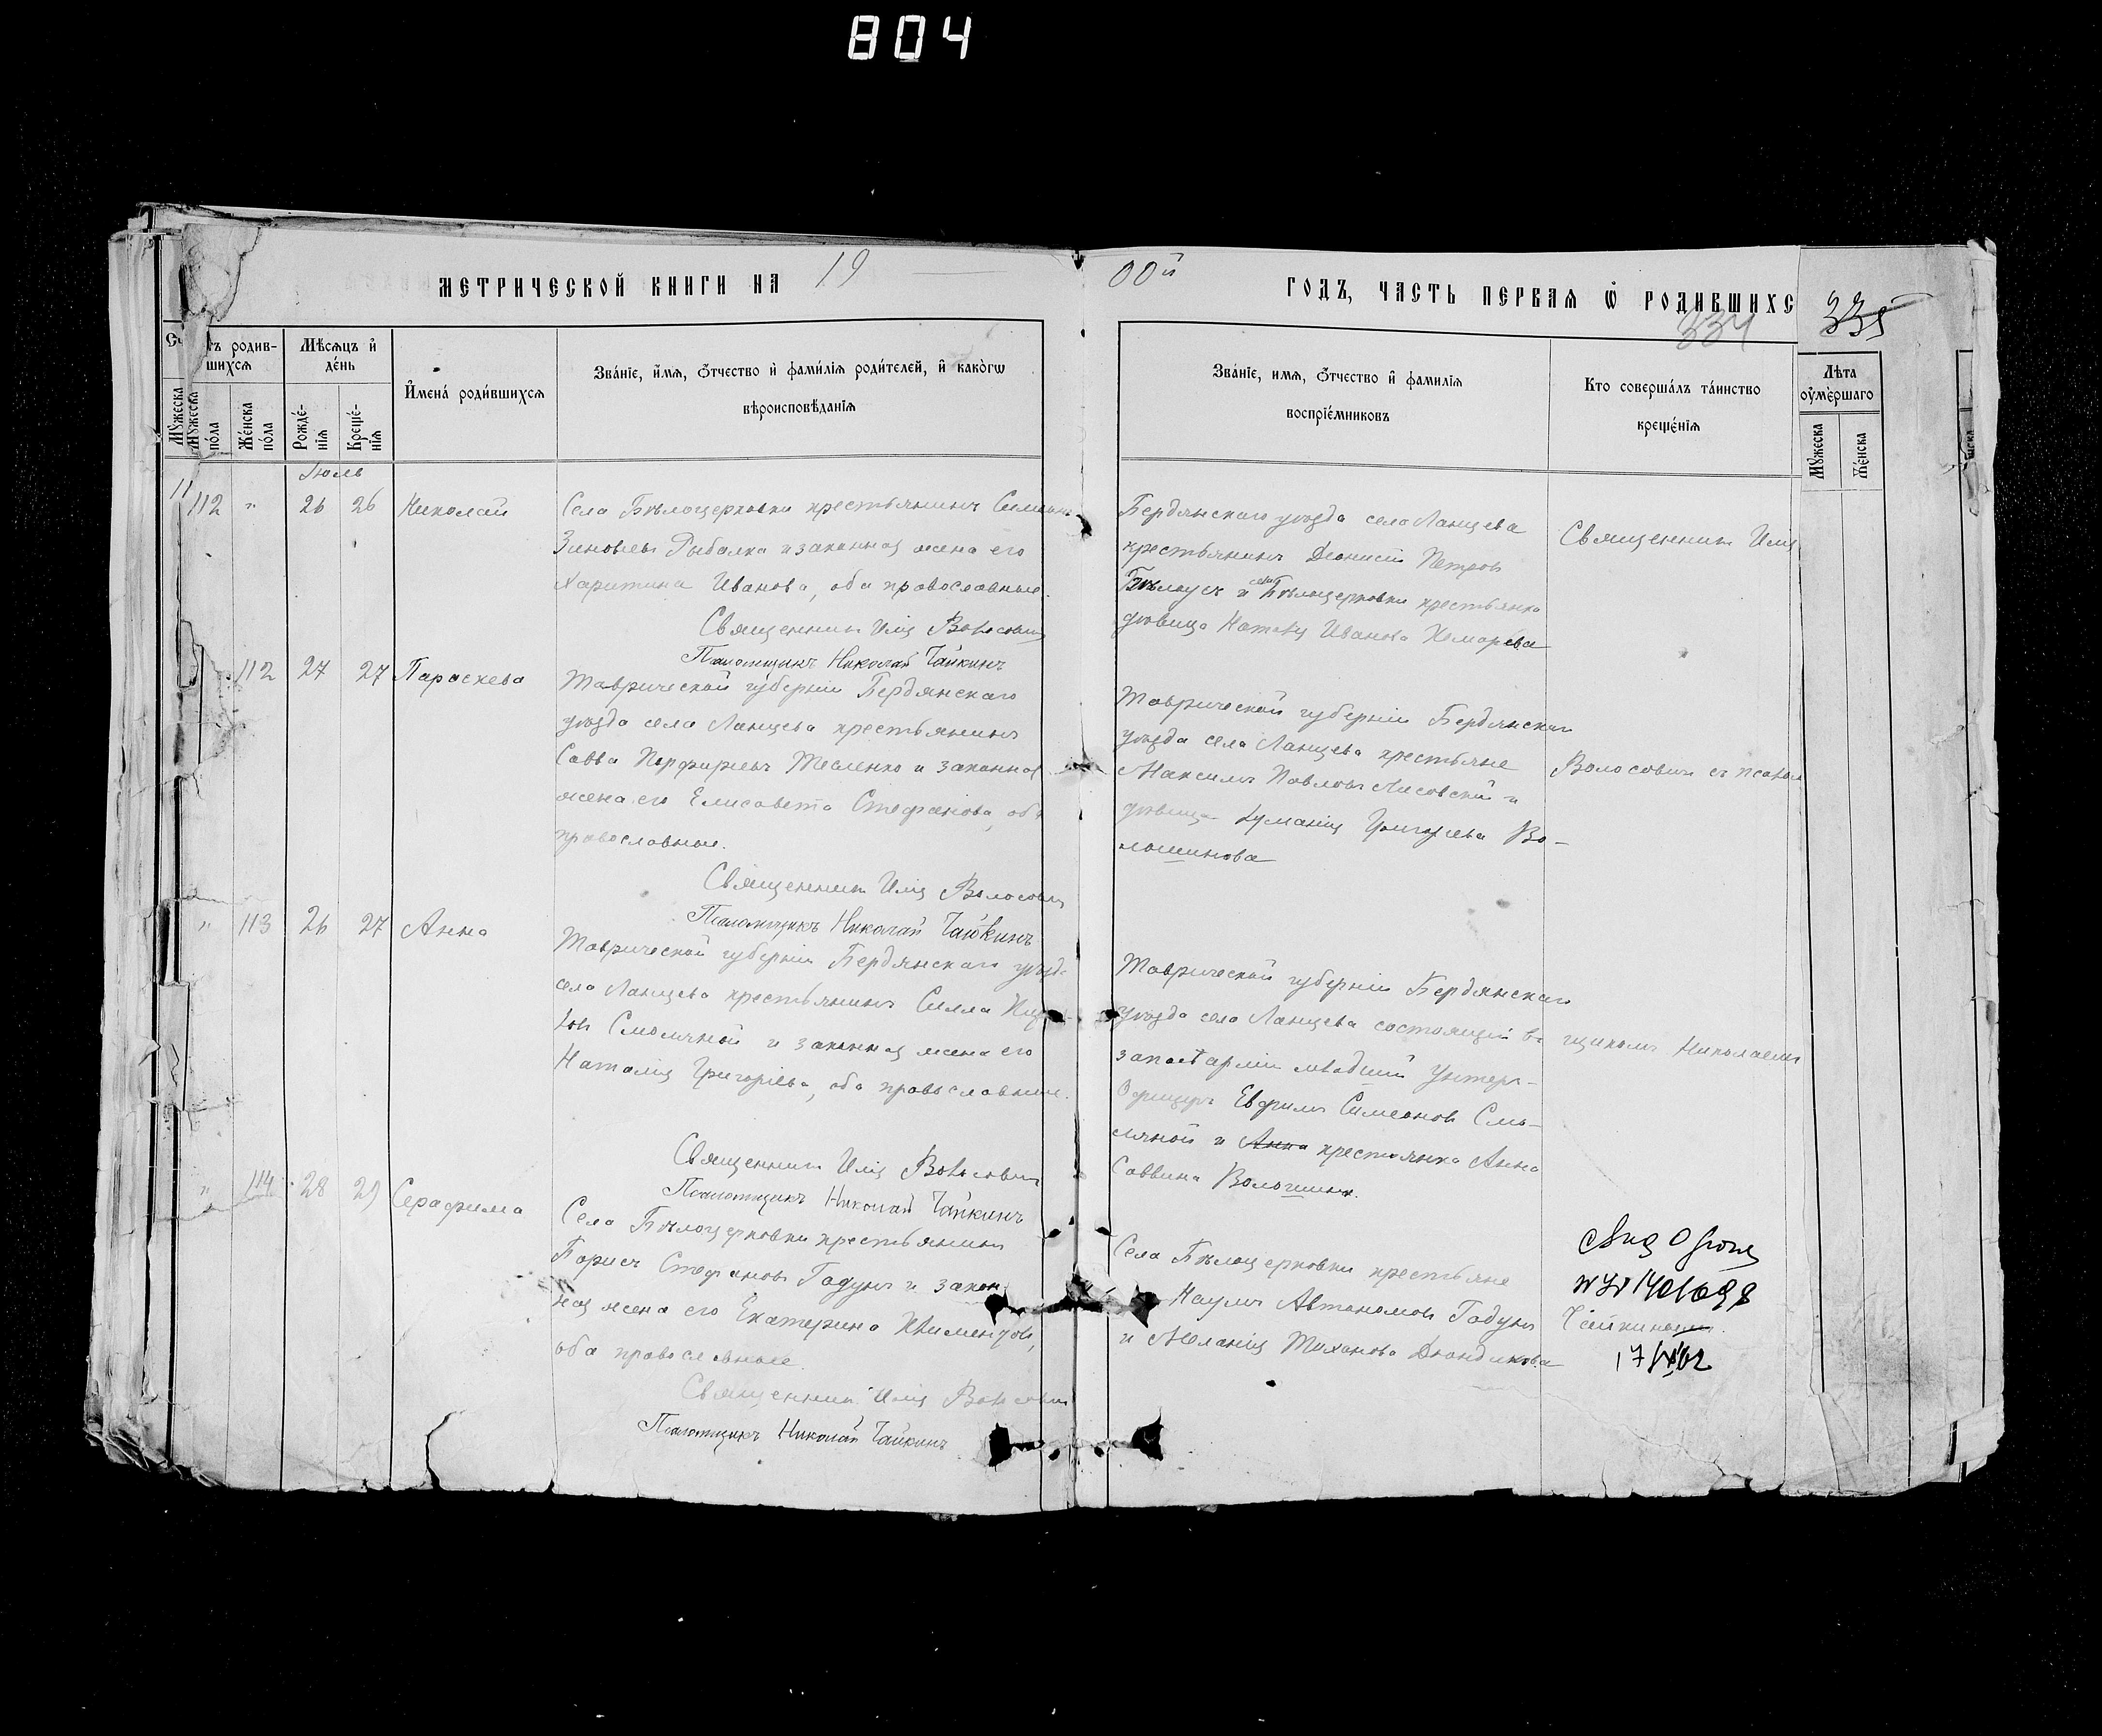 804
МЕТРИЧЕСКОЙ КНИГИ НА 19
00й ГОДЪ, ЧАСТЬ ПЕРВАЯ Ѿ РОДИВШИХС
334
335
тъ родив-
шихся
Мѣсяцъ и
день
Имена родившихся
Званіе, имя, ѿчество и фамилія родителей, и какогѡ
вѣроисповѣданія
Мꙋжеска
Мꙋжеска
пола
Женска
пола
Рожде-
нія
Креще-
нія
Званіе, имя, ѿчество и фамилія
воспріемниковъ
Кто совершалъ таинство
крещенія
Лѣта
оумершаго
Мꙋжеска
Женска
Іюль
11
112 " 26 26 Николай
Села Бѣлоцерковки крестьянинъ Симеонъ
Зиновьевъ Рыбалка и законная жена его
Харитина Иванова, оба православные.
Священникъ Илія Волосовичъ
Псаломщикъ Николай Чайкинъ
Бердянскаго уѣзда села Ланцева
крестьянинъ Діонисій Петровъ
Бѣлоусъ и села Бѣлоцерковки крестьянка
дѣвица Наталія Иванова Комарева
Священникъ Илія
112 27 27 Параскева
Таврической губерніи Бердянскаго
уѣзда села Ланцева крестьянинъ
Савва Порфирьевъ Тесленко и законная
жена его Елисавета Стефанова, оба
православные.
Священникъ Илія Волосовичъ
Псаломщикъ Николай Чайкинъ
Таврической губерніи Бердянскаго
уѣзда села Ланцева крестьяне
Максимъ Павловъ Лисовский и
дѣвица Григорьева Во-
лошинова
Волосовичъ съ псалом
" 113 26 27 Анна
Таврической губерніи Бердянскаго уѣзда
села Ланцева крестьянинъ Силла
Смолячной и законная жена его
Наталія Григоріева, оба православные.
Священникъ Илія Волосовичъ
Псаломщикъ Николай Чайкинъ
Таврической губерніи Бердянскаго
уѣзда села Ланцева состоящій въ
запасѣ арміи младшій Унтеръ-
Офицеръ Евфимъ Симеоновъ Смо-
лячной и Анна крестьянка Анна
Саввина Волошина.
щикомъ Николаемъ
" 114 28 29 Серафима
Села Бѣлоцерковки крестьянинъ
Борисъ Стефановъ Годунъ и закон
ная жена его Екатерина Климентова,
оба православные.
Священникъ Илія Волосовичъ
Псаломщикъ Николай Чайкинъ
Села Бѣлоцерковки крестьяне
Наумъ Автономовъ Годунъ
и Меланія Тихонова
Чайкинымъ.